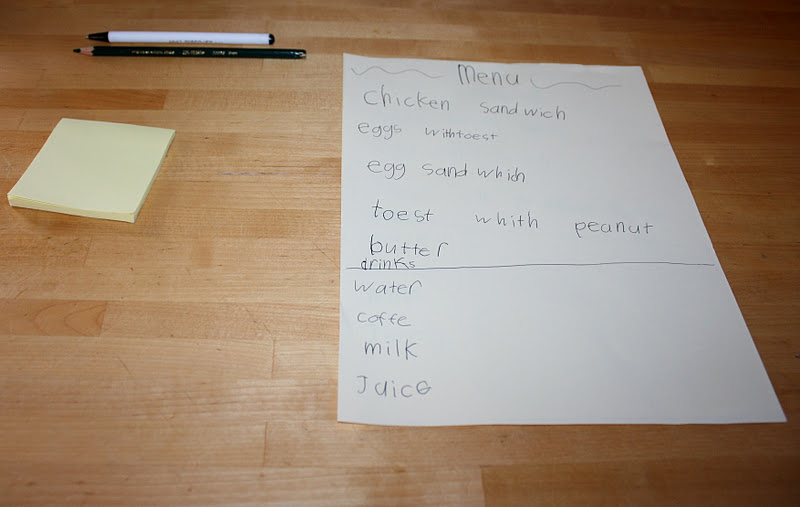 Menu
chicken sandwich
eggs withtoest
egg sandwhich
toest whith peanut
butter
drinks
water
coffe
milk
Juice